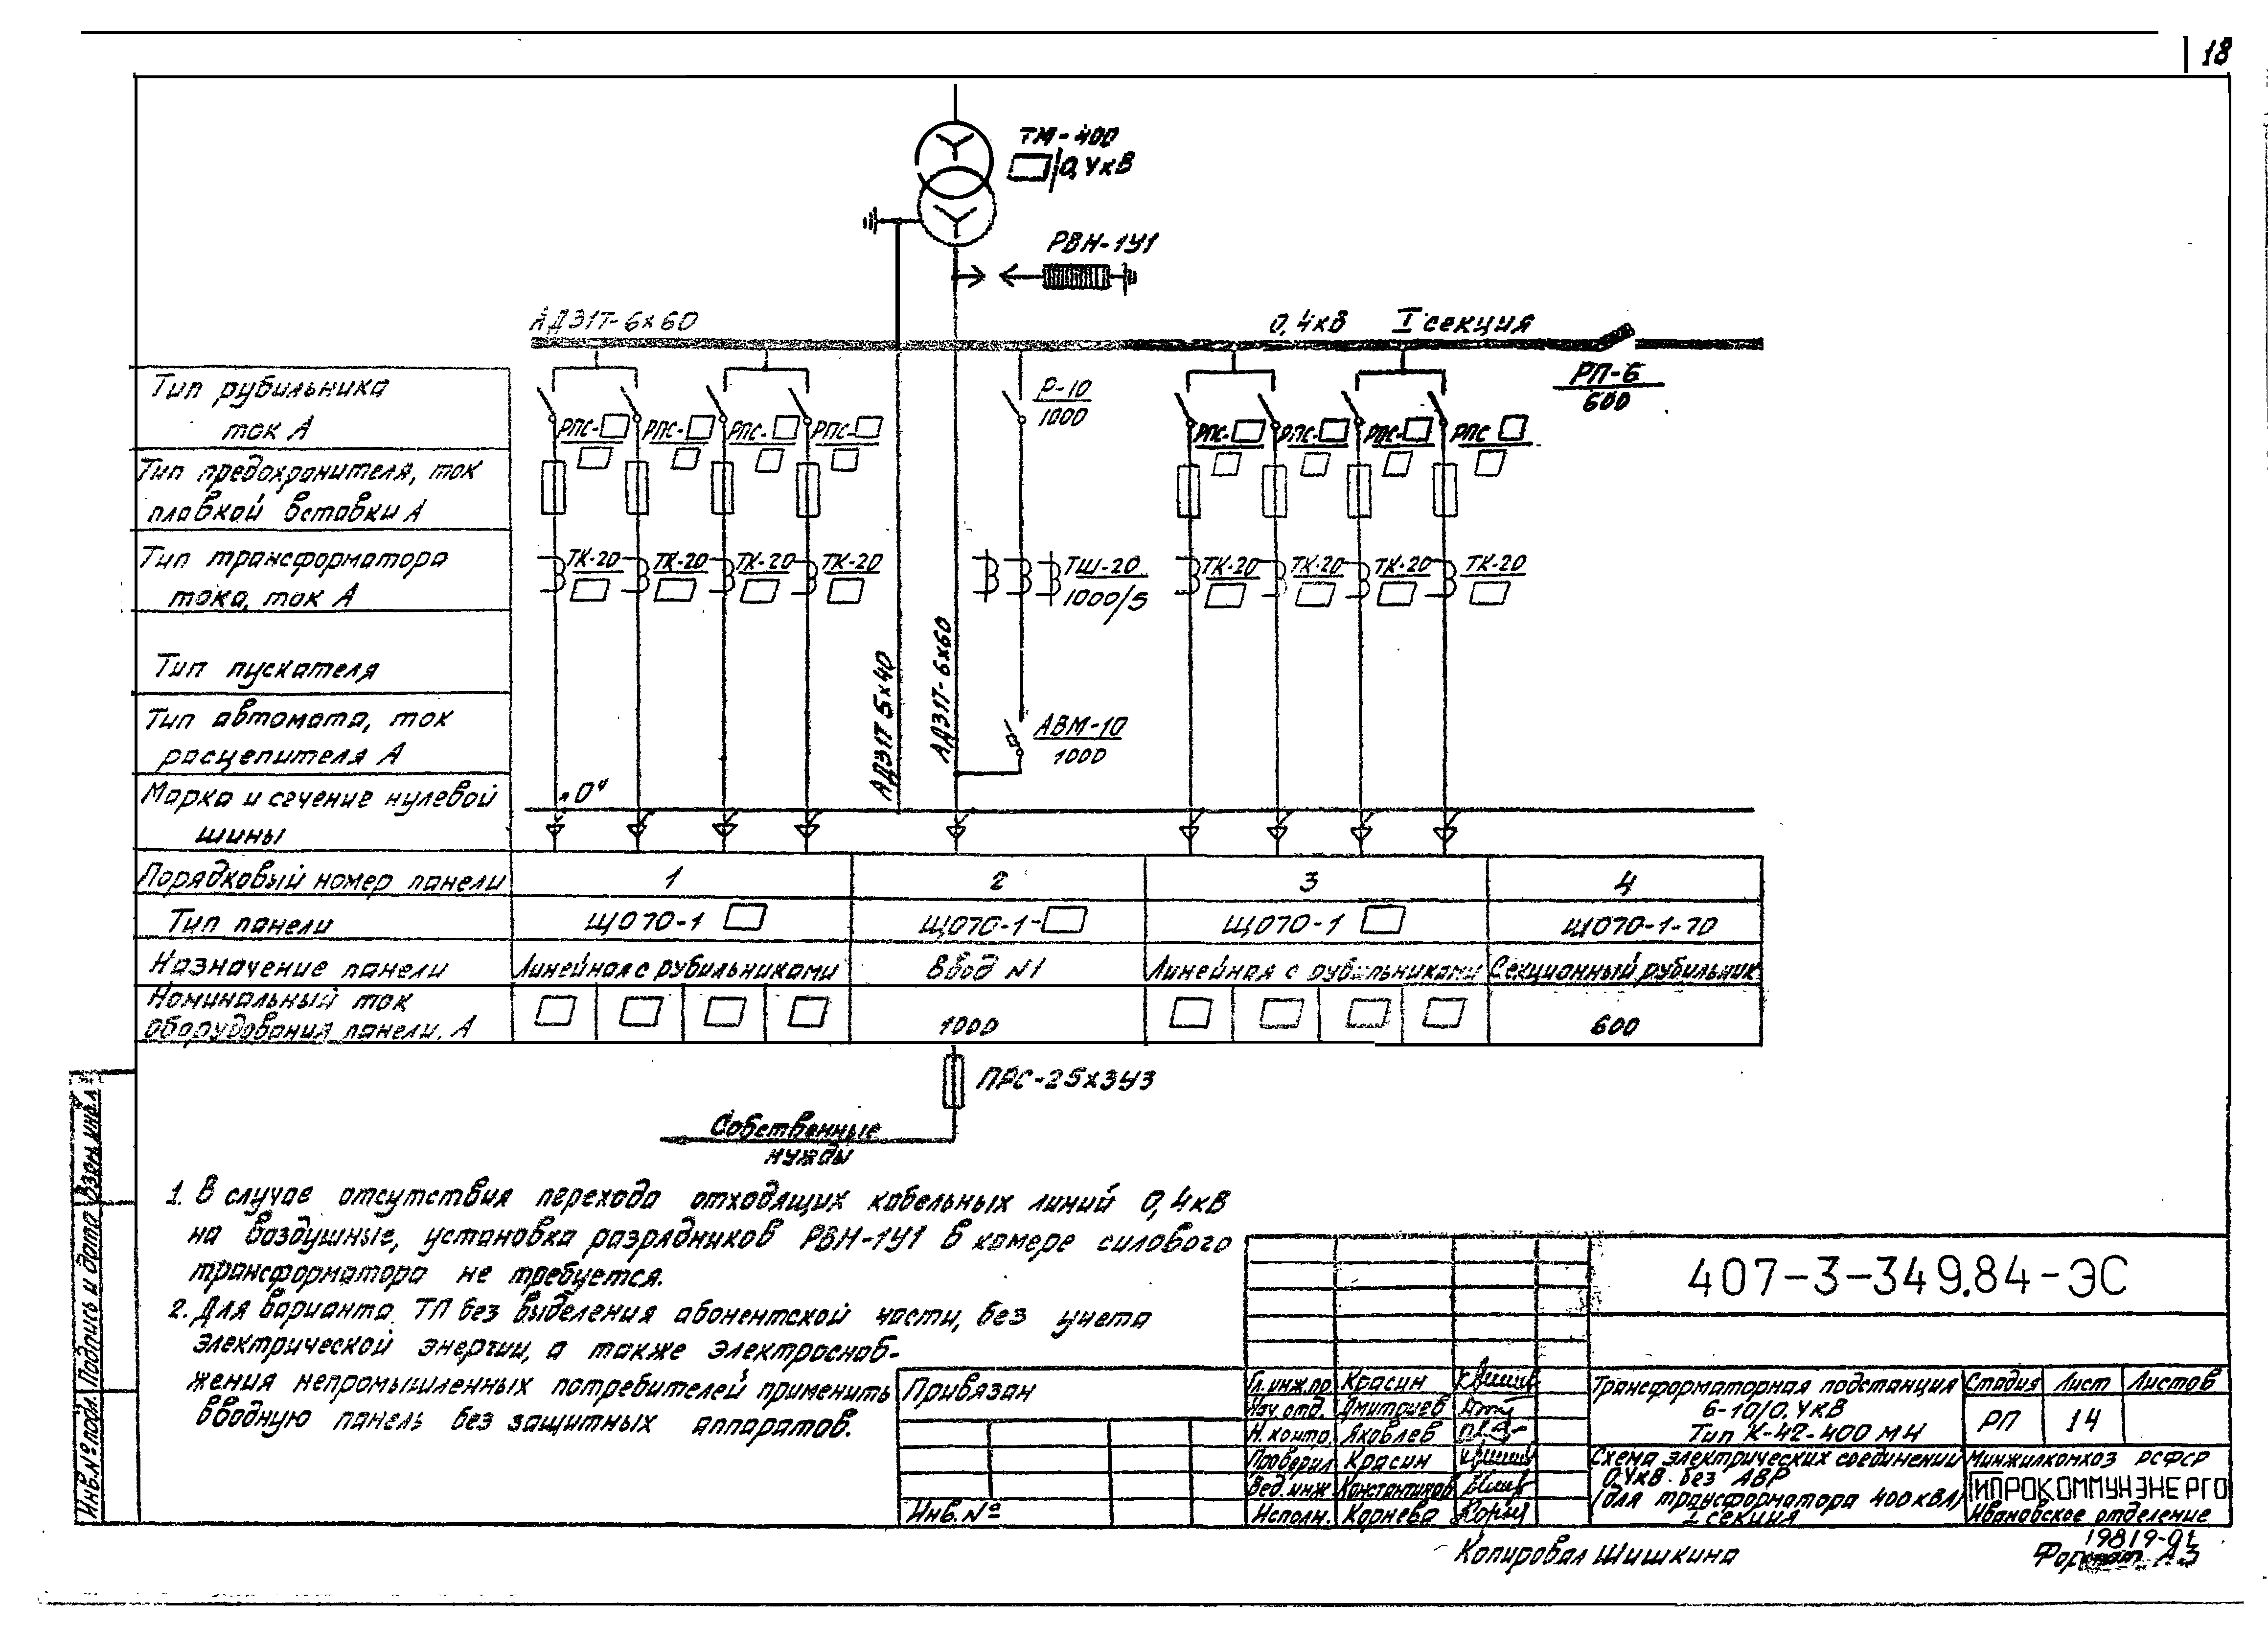 18
ТМ-400
/0,4кВ
РВН-1У1
АД31Т-6х60
0,4кВ I секция
РП-6
600
Тип рубильника
ток А
РПС- РПС- РПС- РПС-
Р-10
1000
РПС- РПС- РПС- РПС
Тип предохранителя, ток
плавкой вставки А
Тип трансформатора
тока, ток А
ТК-20 ТК-20 ТК-20 ТК-20
ТШ-20
1000/5
ТК-20 ТК-20 ТК-20 ТК-20
Тип пускателя
АД31Т 5х40
АД31Т-6х60
Тип автомата, ток
расцепителя А
АВМ-10
1000
Марка и сечение нулевой
шины
„0"
Порядковый номер панели 1 2 3 4
Тип панели ЩО70-1 ЩО70-1- ЩО70-1 ЩО70-1-70
Назначение панели Линейная с рубильниками Ввод N1 Линейная с рубильниками Секционный рубильник
Номинальный ток
оборудования панели, А 1000 600
ПРС-25х3У3
Собственные
нужды
1. В случае отсутствия перехода отходящих кабельных линий 0,4кВ
на воздушные, установка разрядников РВН-1У1 в камере силового
трансформатора не требуется.
2. Для варианта ТП без выделения абонентской части, без учета
электрической энергии, а также электроснаб-
жения непромышленных потребителей применить
вводную панель без защитных аппаратов.
Привязан
Инв. №
Инв.№ подл. Подпись и дата Взам.инв.№
407-3-349.84-ЭС
Гл. инж.пр. Красин
Нач.отд. Дмитриев
Н.контр. Яковлев
Проверил Красин
Вед.инж Константинов
Исполн. Корнева
Трансформаторная подстанция
6-10/0.4кВ
Тип К-42-400 МН
Стадия Лист Листов
РП 14
Схема электрических соединений
0,4кВ без АВР
(для трансформатора 400кВА)
I секция
Минжилкомхоз РСФСР
ГИПРОКОММУНЭНЕРГО
Ивановское отделение
19819-01
Копировал Шишкина
Формат А3